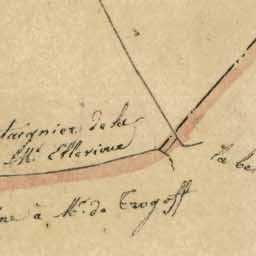 taignier de la
Mr. Ellerioux
la be
ne à Mr. de Trogoff